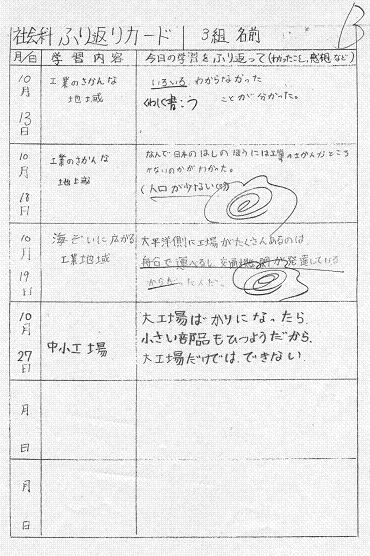 B
社会科 ふり返りカード 3組 名前
月/日 学習内容 今日の学習をふり返って(わかったこと、感想など)
10月13日 工業のさかんな
地域
いろいろ わからなかった
ことが分かった。
くわしく書こう
10月18日 工業のさかんな
地域
なんで日本のはしのほうには工業のさかんなところ
がないのかがわかった。
(人口が少ない
10月19日 海ぞいに広がる
工業地域
太平洋側に工場がたくさんあるのは、
船で運べるし、交通機関が発達している
からなんだ。
10月27日 中小工場
大工場ばかりになったら、
小さい部品もひつようだから、
大工場だけでは、できない。
月
日
月
日